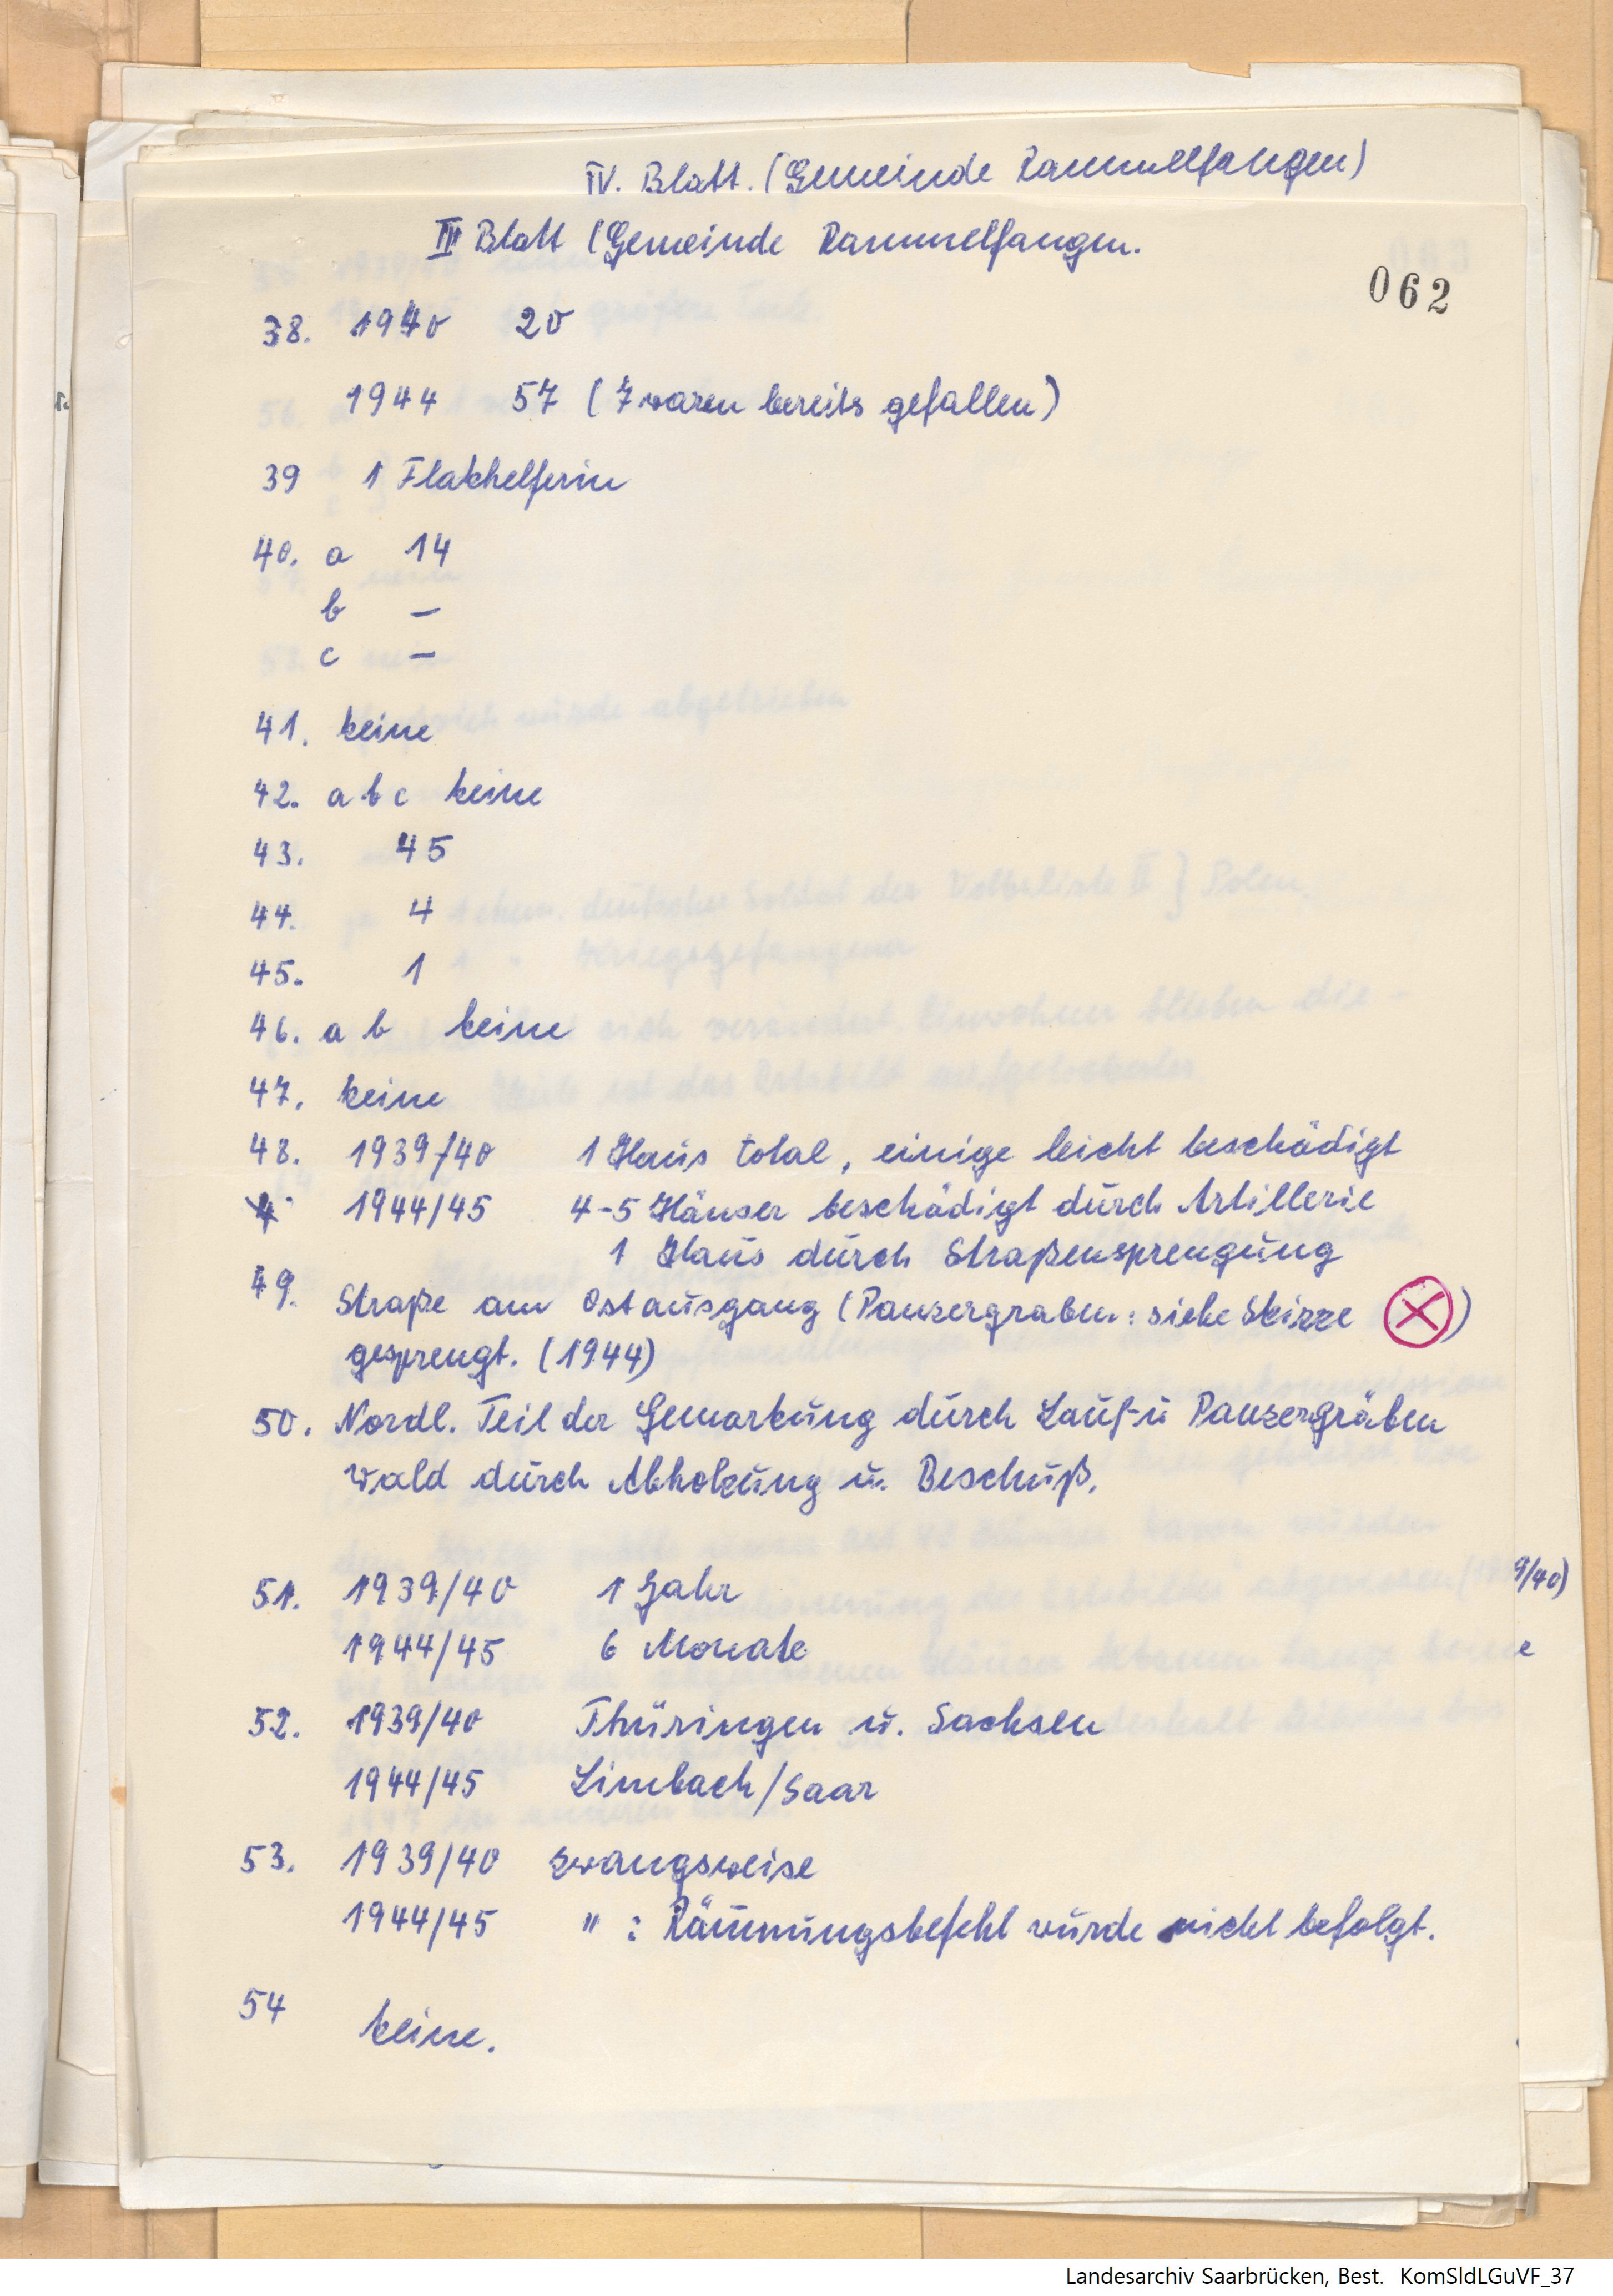 IV. Blatt. (Gemeinde Rammelfangen)
III Blatt (Gemeinde Rammelfangen.
062
38. 1940 20
1944 57 (7 waren bereits gefallen)
39 1 Flakhelferin
40. a 14
b –
c –
41. keine
42. a b c keine
43. 45
44. 4
45. 1
46. a b keine
47. keine
48. 1939/40 1 Haus total, einige leicht beschädigt
1944/45 4-5 Häuser beschädigt durch Artillerie
1 Haus durch Straßensprengung
49. Straße am Ostausgang (Panzergraben: siehe Skizze ⊗)
gesprengt. (1944)
50. Nordl. Teil der Gemarkung durch Lauf- u Panzergräben
Wald durch Abholzung u. Beschuß.
51. 1939/40 1 Jahr
9/40)
1944/45 6 Monate
e
52. 1939/40 Thüringen u. Sachsen
1944/45 Limbach/Saar
53. 1939/40 zwangsweise
1944/45 " : Räumungsbefehl wurde nicht befolgt.
54 keine.
Landesarchiv Saarbrücken, Best. KomSldLGuVF_37